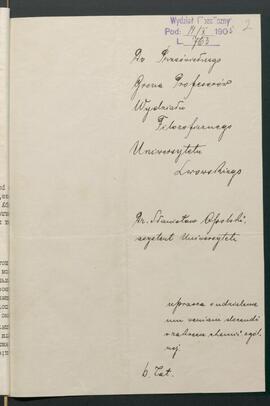 Wydział Filozoficzny
Pod: 11/X 1905
L. 703
2
Do Prześwietnego
Grona Profesorów
Wydziału
Filozoficznego
Uniwersytetu
Lwowskiego
Dr. Stanisław Opolski,
asystent Uniwersytetu
uprasza o udzielenie
mu veniam docendi
z zakresu chemii ogól-
nej
6. Zał.